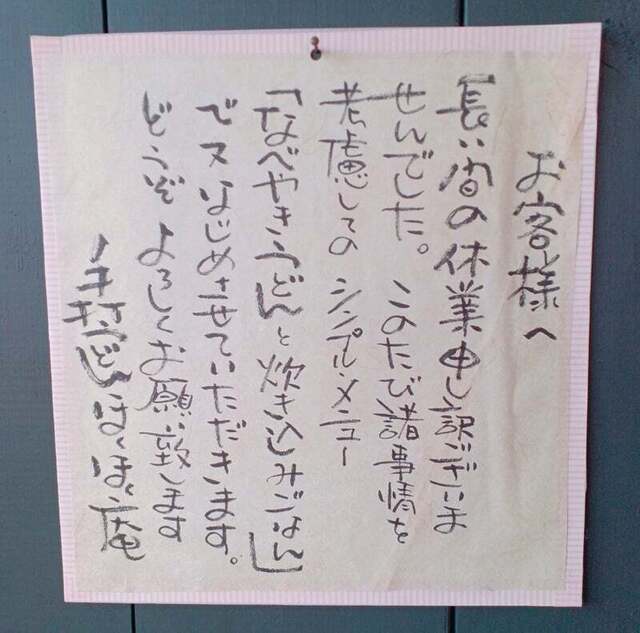 お客様へ
長い間の休業申し訳ございま
せんでした。このたび諸事情を
考慮しての シンプル・メニュー
「なべやきうどんと炊き込みごはん」
でスはじめさせていただきます。
どうぞ よろしくお願い致します
手打うどん ほくほく庵